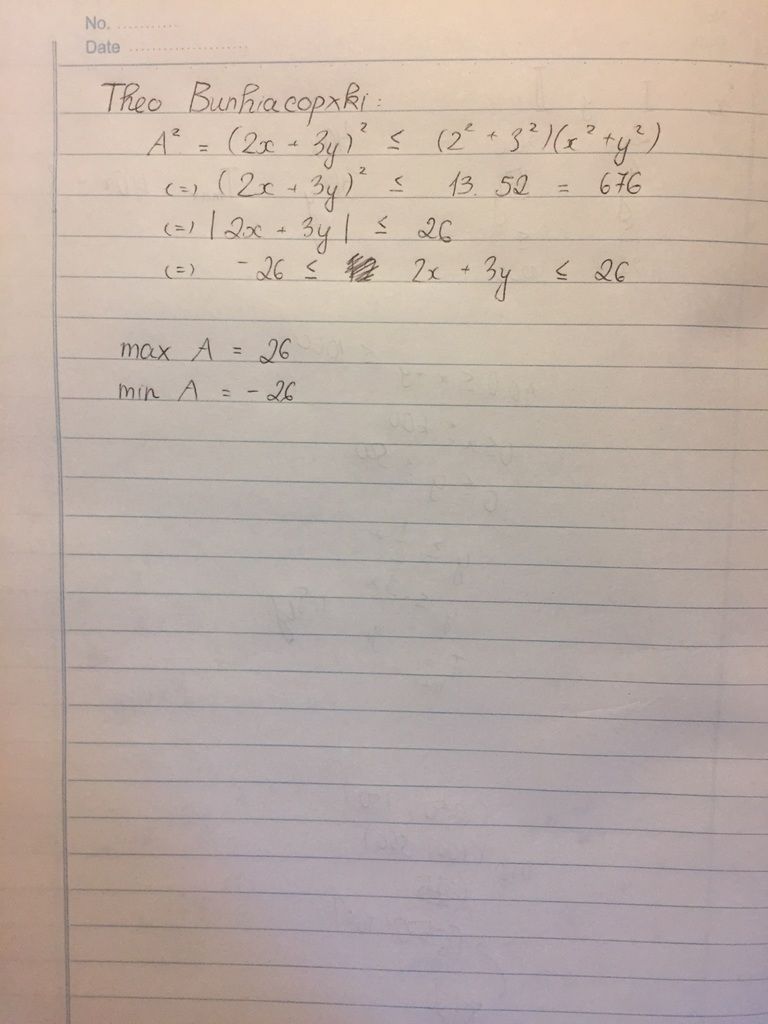 No. ............
Date ......................
Theo Bunhiacopxki:
A² = (2x + 3y)² ≤ (2² + 3²)(x² + y²)
(=) (2x + 3y)² ≤ 13. 52 = 676
(=) | 2x + 3y | ≤ 26
(=) - 26 ≤ 2x + 3y ≤ 26
max A = 26
min A = - 26